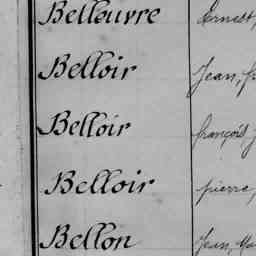 Belleuvre Ernest,
Belloir Jean,
Belloir françois,
Belloir pierre,
Bellon Jean,